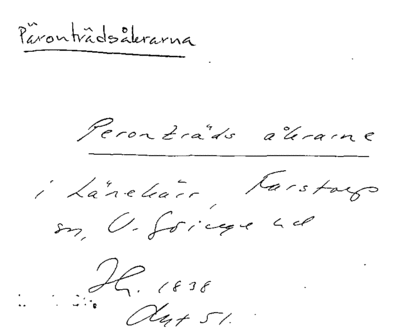 Päronträdsåkrarna
Peronträds åkrarne
i Länekärr, Farstorps
sn, V. Göinge hd
Jh. 1838
Akt 51.